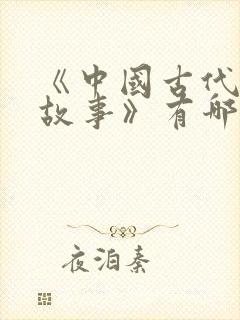 《中國古代
故事》有哪
夜泊秦